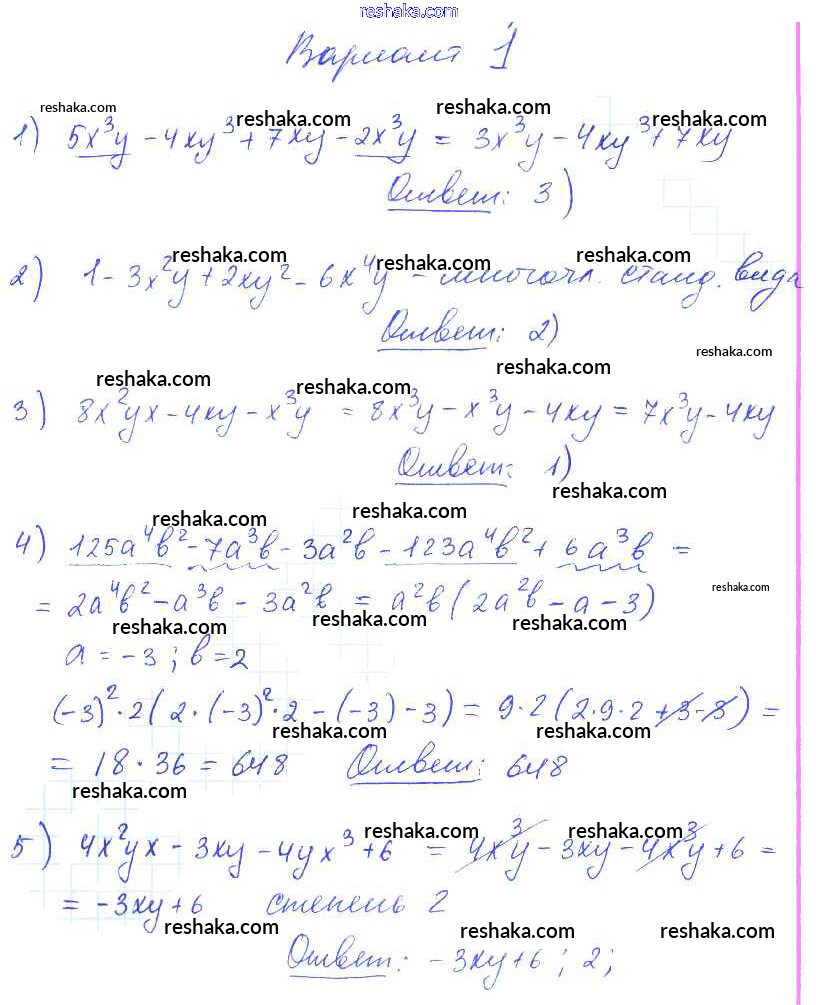 reshaka.com
Вариант 1
reshaka.com reshaka.com reshaka.com reshaka.com
1) 5x³y - 4xy³ + 7xy - 2x³y = 3x³y - 4xy³ + 7xy
Ответ: 3)
reshaka.com reshaka.com reshaka.com
2) 1 - 3x²y + 2xy² - 6x⁴y - многочл. станд. вида
Ответ: 2)
reshaka.com
reshaka.com reshaka.com reshaka.com
3) 8x²yx - 4xy - x³y = 8x³y - x³y - 4xy = 7x³y - 4xy
Ответ: 1)
reshaka.com
reshaka.com reshaka.com
4) 125a⁴b² - 7a³b - 3a²b - 123a⁴b² + 6a³b =
= 2a⁴b² - a³b - 3a²b = a²b(2a²b - a - 3)
reshaka.com
reshaka.com reshaka.com reshaka.com
a = -3; b = 2
(-3)²·2(2·(-3)²·2 - (-3) - 3) = 9·2(2·9·2 + 3 - 3) =
reshaka.com reshaka.com reshaka.com
= 18·36 = 648 Ответ: 648
reshaka.com
reshaka.com reshaka.com
5) 4x²yx - 3xy - 4yx³ + 6 = 4x³y - 3xy - 4x³y + 6 =
= -3xy + 6 степень 2
reshaka.com reshaka.com reshaka.com
Ответ: -3xy + 6; 2;